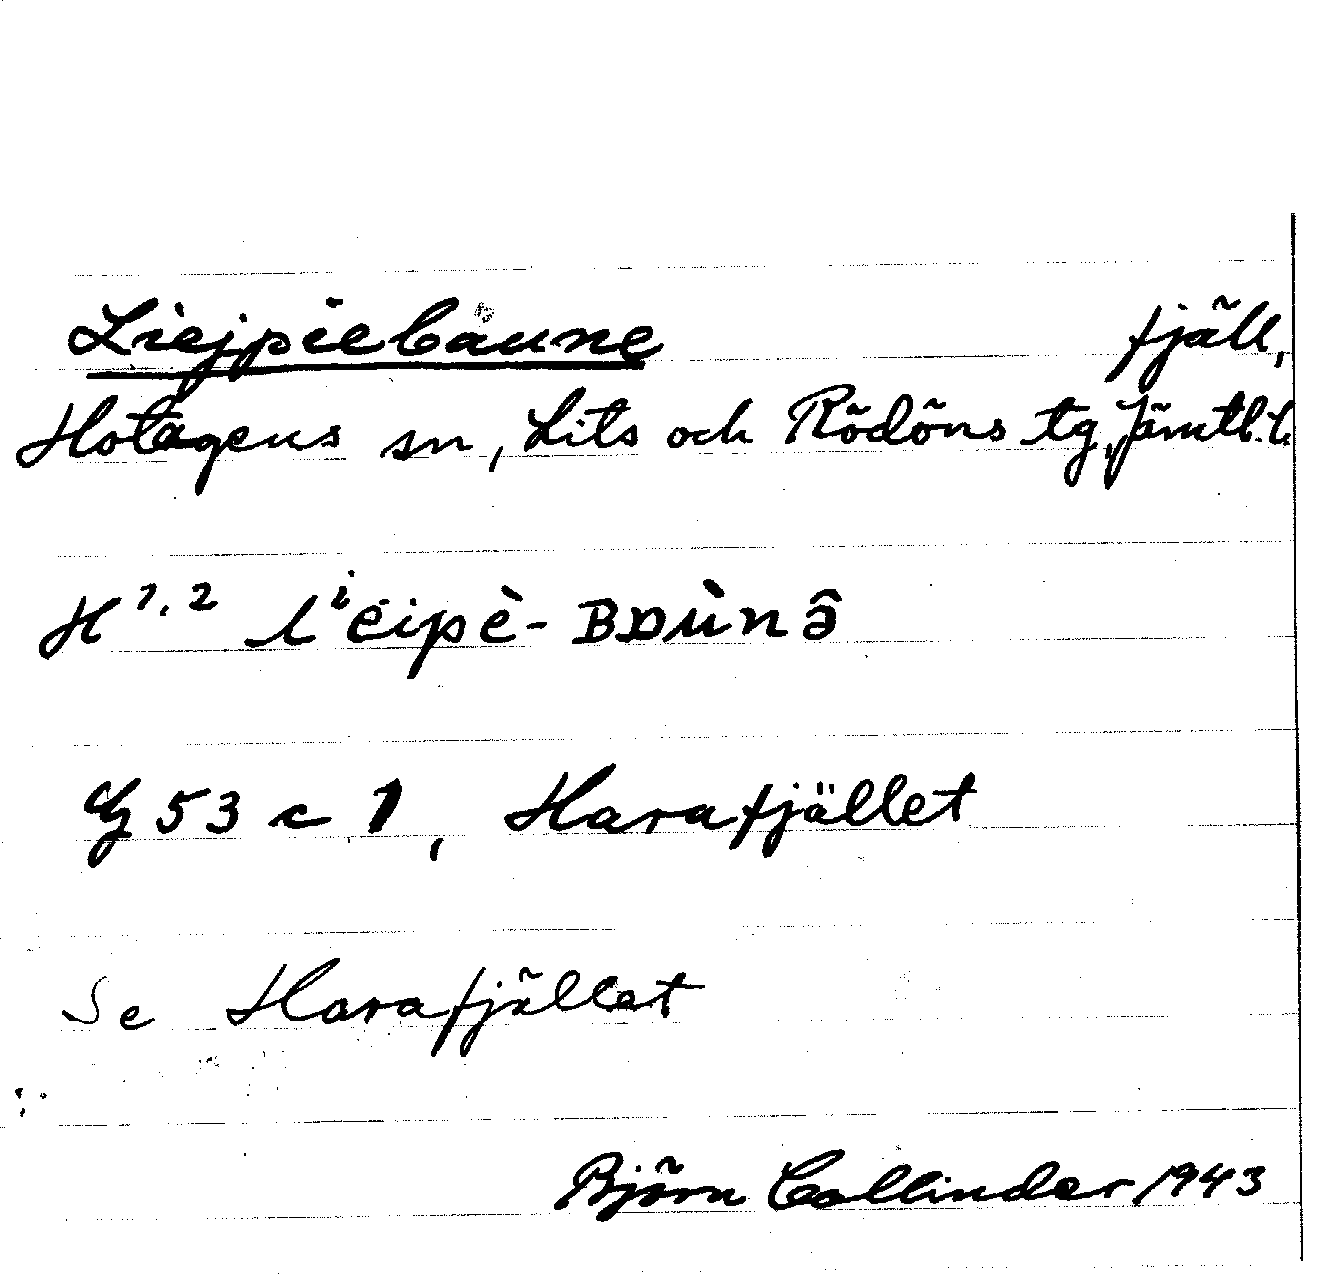 Liejpiebaune fjäll,
Hotagens sn, Lits och Rödöns tg, Jämtl. l.
H 1, 2 lⁱėipè- BDùnə̂
G 53 c 1, Harafjället
Se Harafjället
Björn Collinder 1943